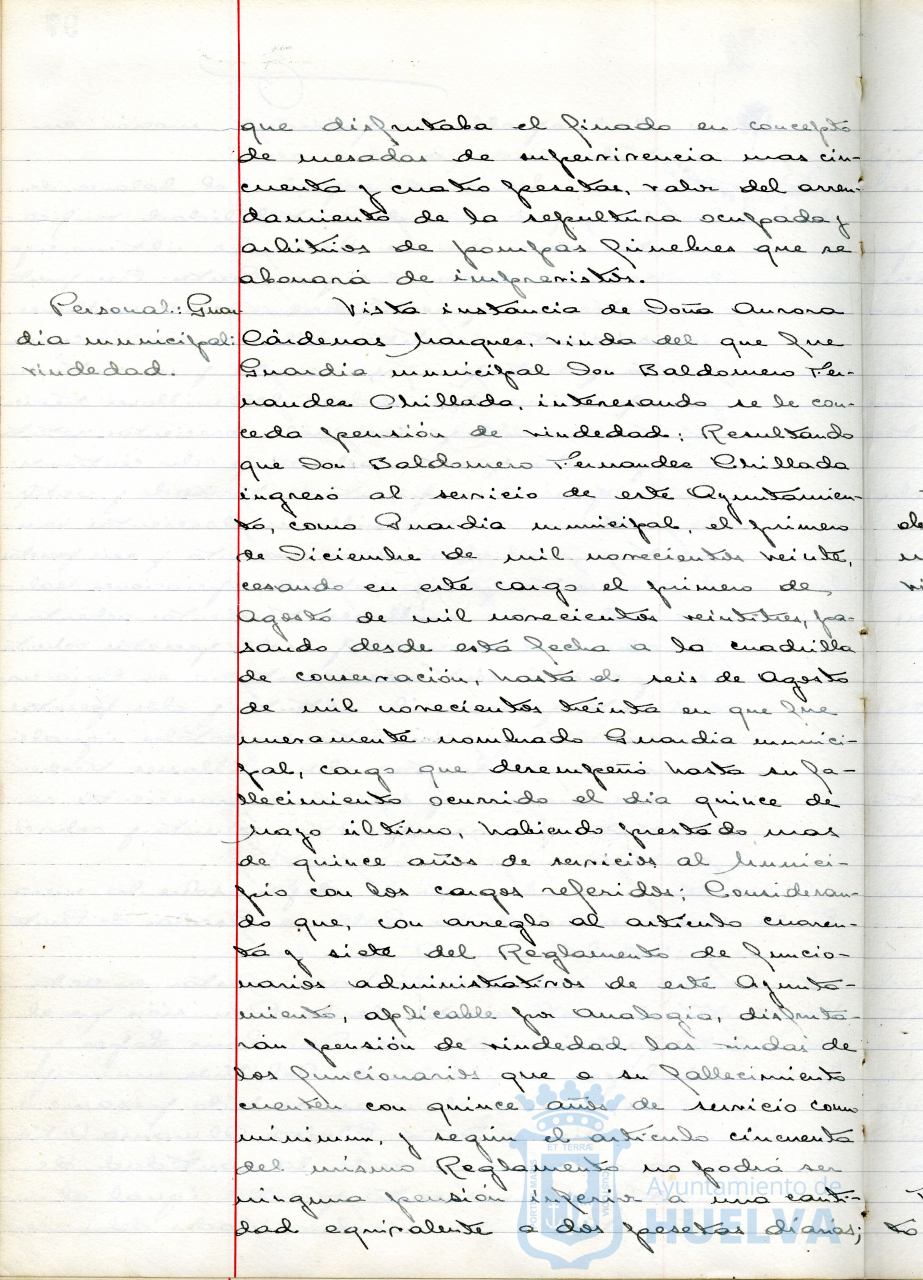 que disfrutaba el finado en concepto
de mesadas de supervivencia mas cin-
cuenta y cuatro pesetas, valor del arren-
damiento de la sepultura ocupada y
arbitrios de pompas fúnebres que se
abonará de imprevistos.
Personal: Guar
dia municipal:
viudedad.
Vista instancia de Doña Aurora
Cárdenas Marques, viuda del que fue
Guardia municipal Don Baldomero Fer-
nandez Chillada, interesando se le con-
ceda pensión de viudedad; Resultando
que Don Baldomero Fernandez Chillada
ingresó al servicio de este Ayuntamien-
to, como Guardia municipal, el primero
de Diciembre de mil novecientos veinte,
cesando en este cargo el primero de
Agosto de mil novecientos veintitres, pa-
sando desde esta fecha a la cuadrilla
de conservación, hasta el seis de Agosto
de mil novecientos treinta en que fue
nueramente nombrado Guardia munici-
pal, cargo que desempeñó hasta su fa-
llecimiento ocurrido el dia quince de
Mayo último, habiendo prestado mas
de quince años de servicios al Munici-
pio con los cargos referidos; Consideran-
do que, con arreglo al artículo cuaren-
ta y siete del Reglamento de funcio-
narios administrativos de este Ayunta-
miento, aplicable por analogia, disfruta-
rán pensión de viudedad las viudas de
los funcionarios que a su fallecimiento
cuenten con quince años de servicio como
minimum, y según el artículo cincuenta
del mismo Reglamento no podrá ser
ninguna pensión inferior a una canti-
dad equivalente a dos pesetas diarias;
ET TERRÆ
Ayuntamiento de
HUELVA